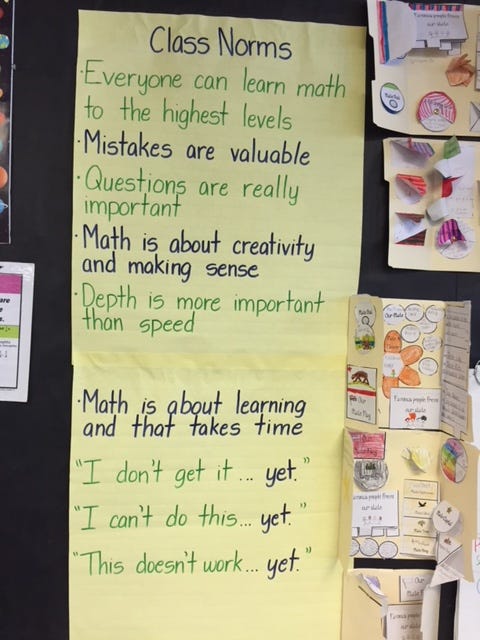 Class Norms
·Everyone can learn math
to the highest levels
·Mistakes are valuable
·Questions are really
important
·Math is about creativity
and making sense
·Depth is more important
than speed
·Math is about learning
and that takes time
"I don't get it... yet."
"I can't do this... yet."
"This doesn't work... yet."
Famous people from
our state
Our
State Flag
Famous people from
our state
Famous people from
our state